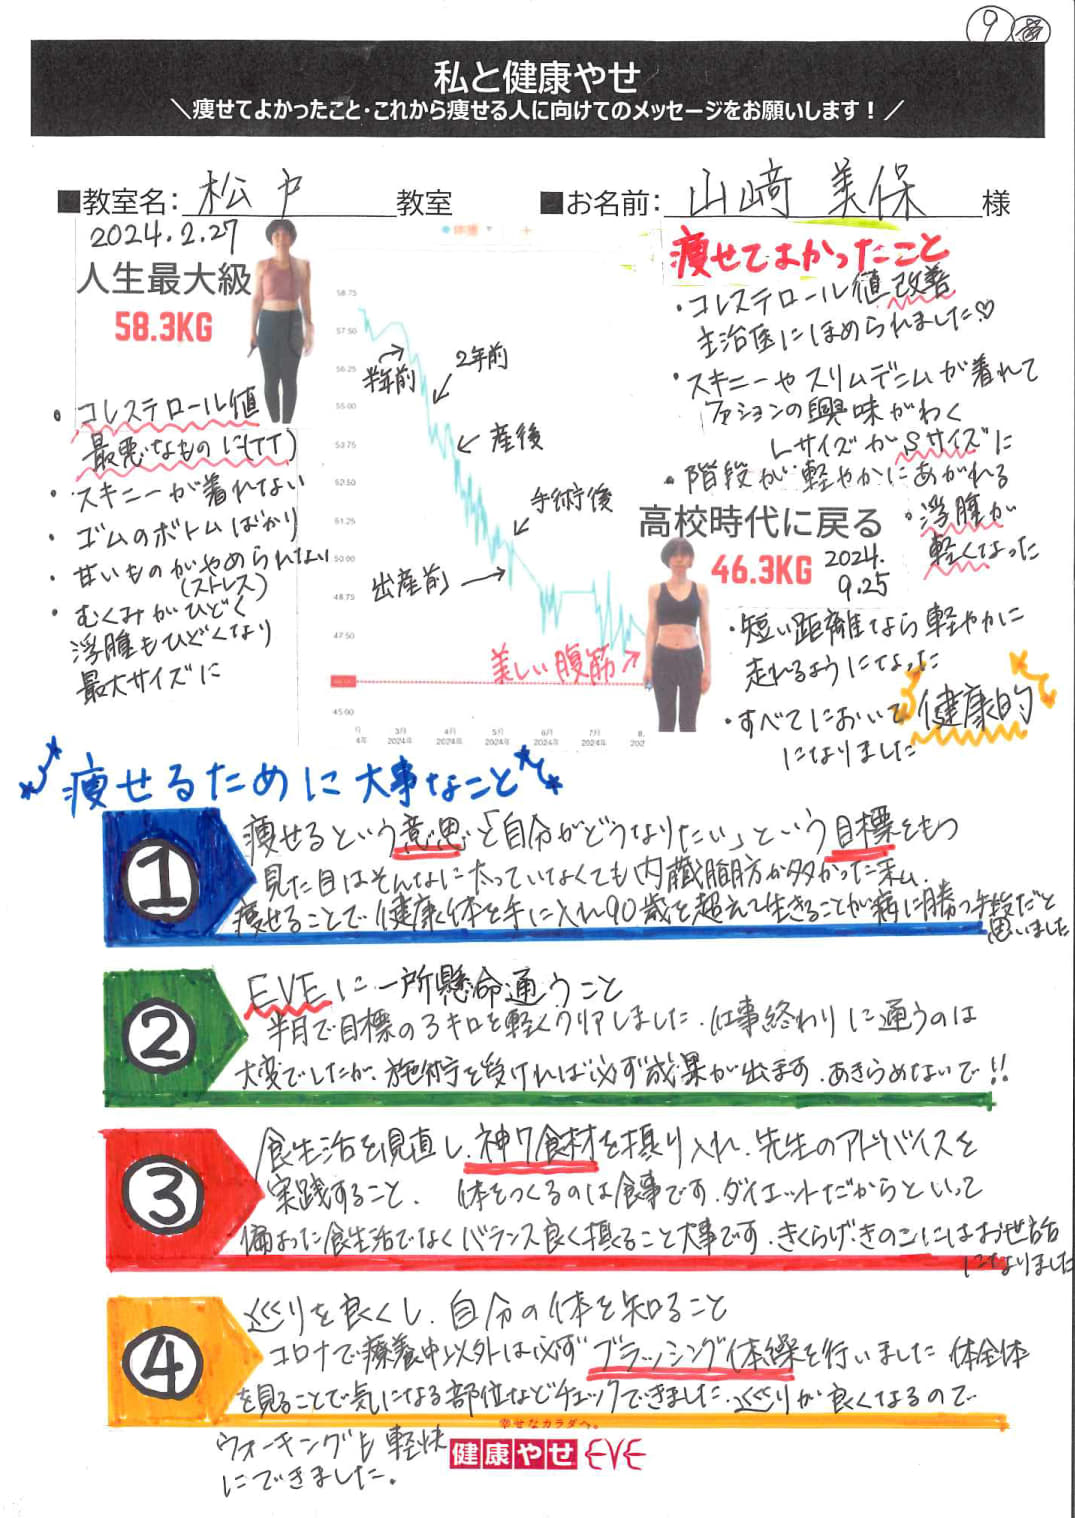 9
私と健康やせ
＼痩せてよかったこと・これから痩せる人に向けてのメッセージをお願いします！／
■教室名： 松戸 教室
■お名前： 山﨑 美保 様
2024.2.27
人生最大級
58.3KG
・コレステロール値
最悪なものに(TT)
・スキニーが着れない
・ゴムのボトムばかり
・甘いものがやめられない
(ストレス)
・むくみがひどく
浮腫もひどくなり
最大サイズに
体重
58.75
57.50
56.25
55.00
53.75
52.50
51.25
50.00
48.75
47.50
45.00
半年前
2年前
産後
手術後
出産前
美しい腹筋
月
4年
3月
2024年
4月
2024年
5月
2024年
6月
2024年
7月
2024年
8.
202
痩せてよかったこと
・コレステロール値改善
主治医にほめられました♡
・スキニーやスリムデニムが着れて
ファションの興味がわく
LサイズがSサイズに
・階段が軽やかにあがれる
・浮腫が
軽くなった
高校時代に戻る
46.3KG
2024.
9.25
・短い距離なら軽やかに
走れるようになった
・すべてにおいて健康的
になりました
痩せるために大事なこと
1
痩せるという意思と「自分がどうなりたい」という目標をもつ
見た目はそんなに太っていなくても内蔵脂肪が多かった私。
痩せることで健康体を手に入れ90歳を超えて生きることが病に勝つ手段だと
思いました
2
EVEに一所懸命通うこと
半月で目標の3キロを軽くクリアしました。仕事終わりに通うのは
大変でしたが、施術を受ければ必ず成果が出ます。あきらめないで!!
3
食生活を見直し、神7食材を摂り入れ、先生のアドバイスを
実践すること、 体をつくるのは食事です。ダイエットだからといって
偏った食生活でなくバランス良く摂ること大事です。きくらげ・きのこにはお世話
になりました
4
巡りを良くし、自分の体を知ること
コロナで療養中以外は必ずブラッシング体操を行いました 体全体
を見ることで気になる部位などチェックできました。巡りが良くなるので
ウォーキングも軽快
にできました。
幸せなカラダへ。
健康やせEVE